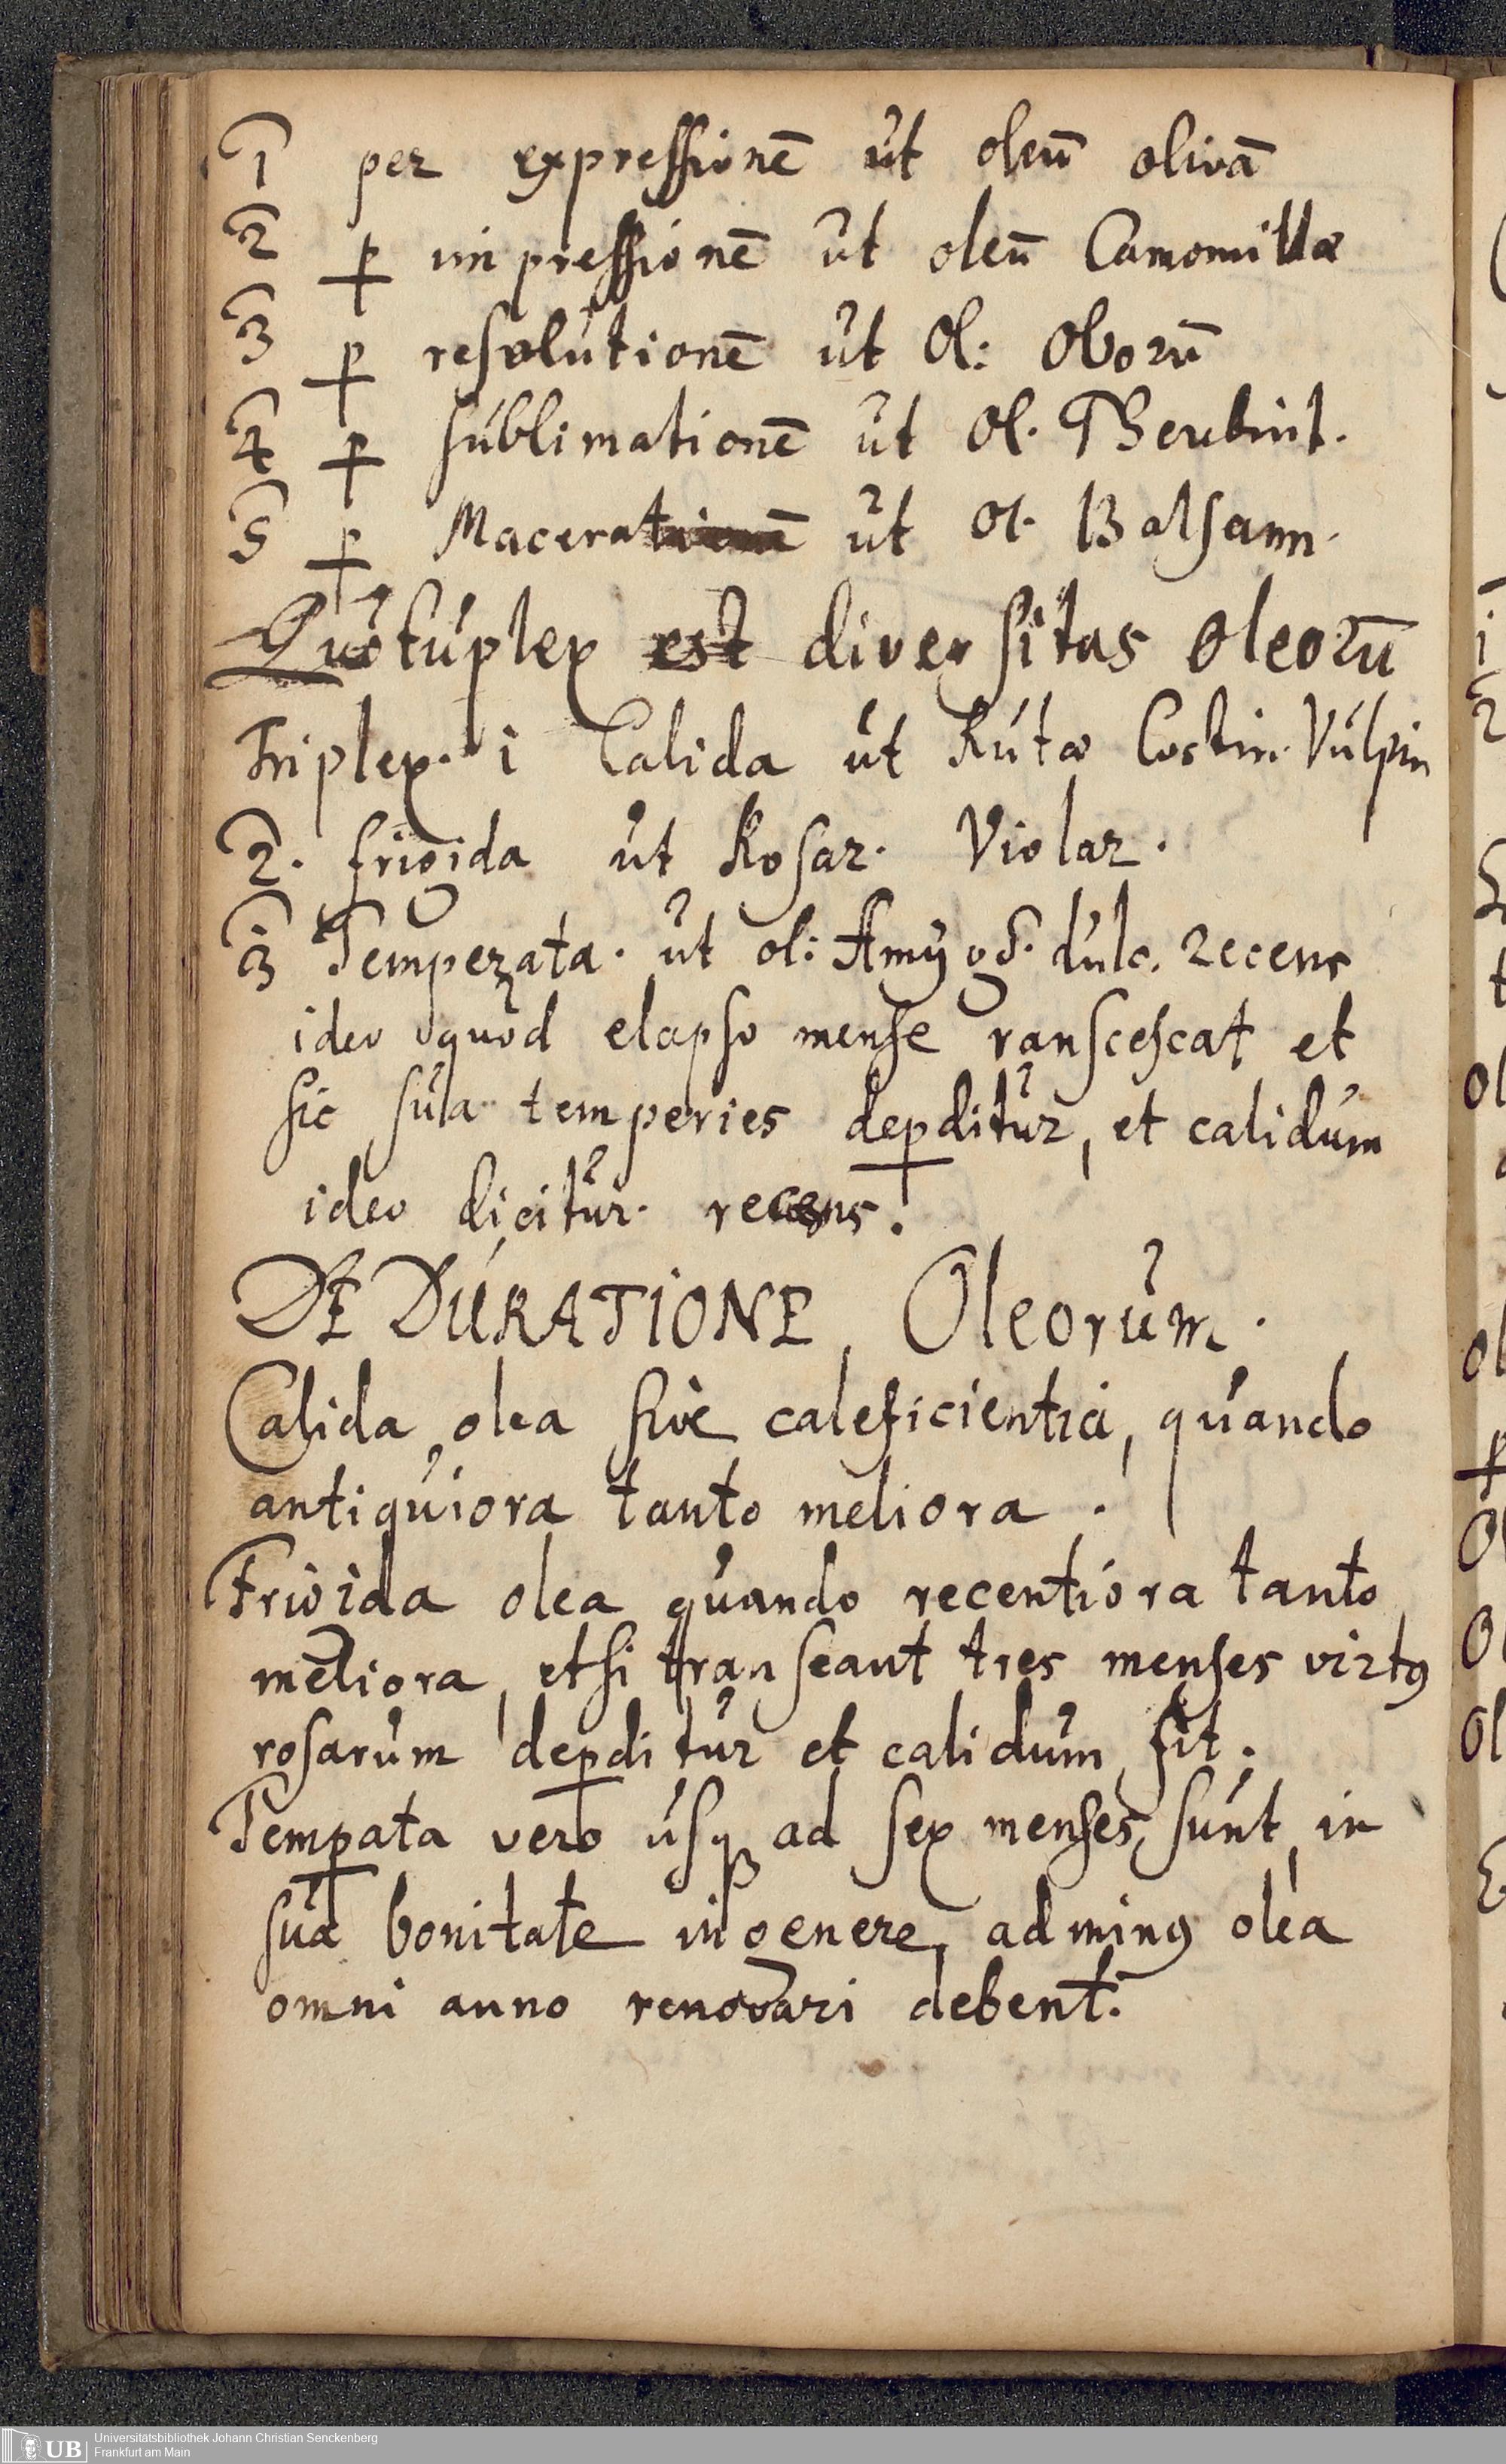 1 per expressionē ut oleū olivā
2 ꝑ impressionē ut oleū Camomillæ
3 ꝑ resolutionē ut Ol: Ovorū
4 ꝑ sublimationē ut Ol. Therebint.
5 ꝑ Macerationē ut Ol. Balsam.
Quotuplex est diversitas oleorū
Triplex. i Calida ut Rutæ Costin. Vulpin
2. frigida ut Rosar. Violar.
3 Temperata. ut ol: Amygd. dulc. recens
ideo quod elapso mense ranscescat et
sic sua temperies deꝑditur, et calidum
ideo dicitur. recens.
DE DURATIONE Oleorum.
Calida olea sive caleficientia, quando
antiquiora tanto meliora.
Frigida olea quando recentiora tanto
meliora, etsi transeant tres menses virtꝰ
rosarum deꝑditur et calidum fit.
Temꝑata vero usqꝫ ad sex menses sunt in
sua bonitate in genere, ad minꝰ olea
omni anno renovari debent.
Universitätsbibliothek Johann Christian Senckenberg
Frankfurt am Main
UB